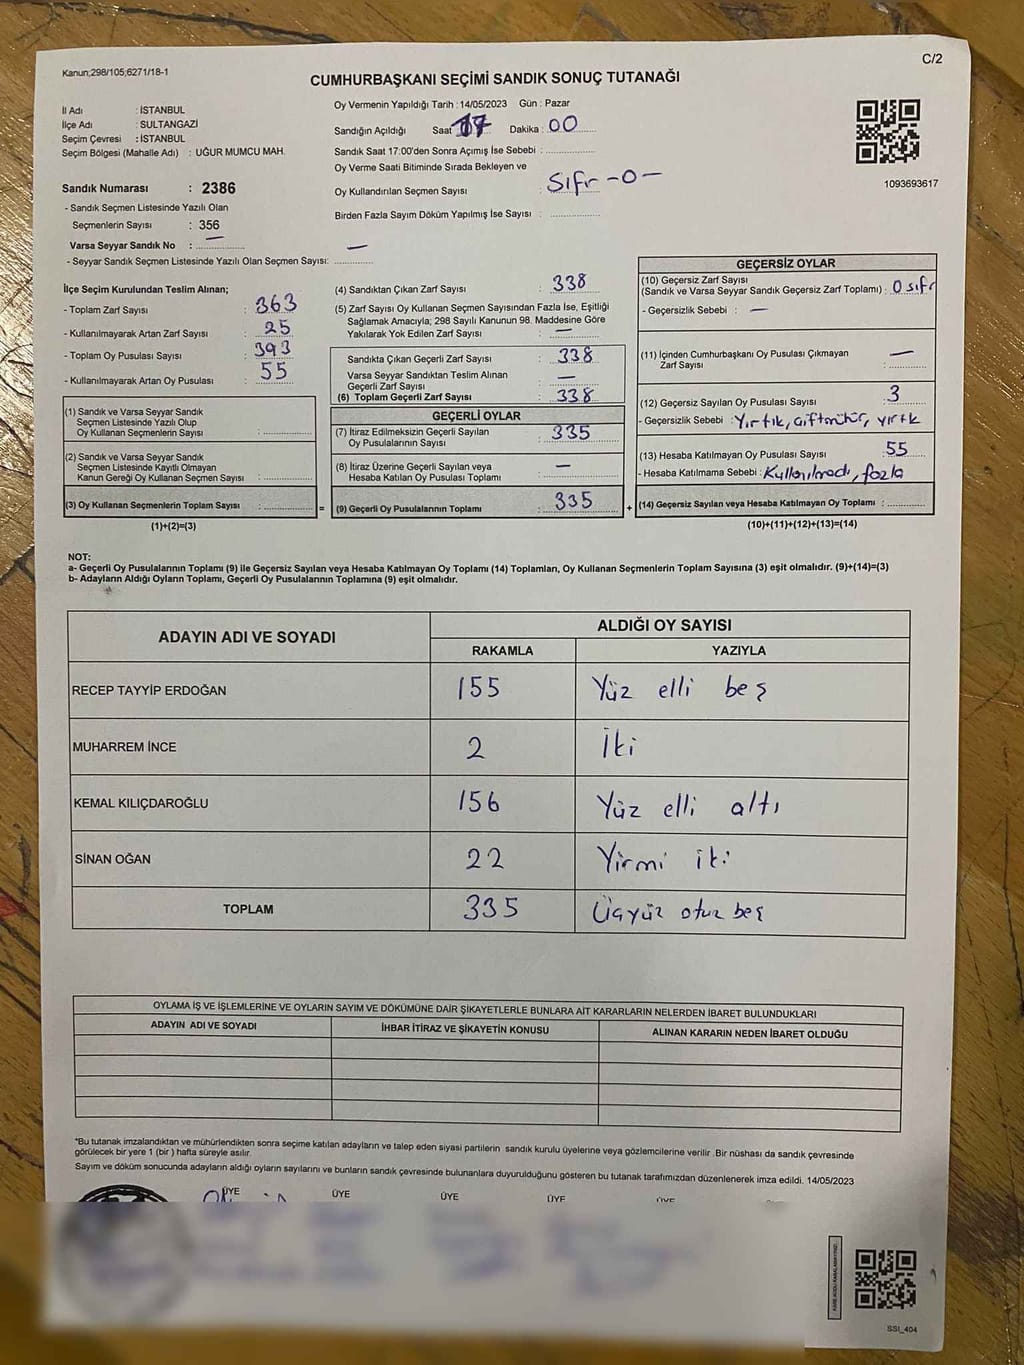 Kanun;298/105;6271/18-1
C/2
CUMHURBAŞKANI SEÇİMİ SANDIK SONUÇ TUTANAĞI
İl Adı : İSTANBUL
İlçe Adı : SULTANGAZİ
Seçim Çevresi : İSTANBUL
Seçim Bölgesi (Mahalle Adı) : UĞUR MUMCU MAH.
Sandık Numarası : 2386
- Sandık Seçmen Listesinde Yazılı Olan
Seçmenlerin Sayısı : 356
Varsa Seyyar Sandık No : —
- Seyyar Sandık Seçmen Listesinde Yazılı Olan Seçmen Sayısı: —
Oy Vermenin Yapıldığı Tarih : 14/05/2023 Gün : Pazar
Sandığın Açıldığı Saat 17 Dakika : 00
Sandık Saat 17:00'den Sonra Açımış İse Sebebi :
Oy Verme Saati Bitiminde Sırada Bekleyen ve
Oy Kullandırılan Seçmen Sayısı : Sıfır -0-
Birden Fazla Sayım Döküm Yapılmış İse Sayısı :
1093693617
İlçe Seçim Kurulundan Teslim Alınan;
- Toplam Zarf Sayısı : 363
- Kullanılmayarak Artan Zarf Sayısı : 25
- Toplam Oy Pusulası Sayısı : 393
- Kullanılmayarak Artan Oy Pusulası : 55
(1) Sandık ve Varsa Seyyar Sandık
Seçmen Listesinde Yazılı Olup
Oy Kullanan Seçmenlerin Sayısı :
(2) Sandık ve Varsa Seyyar Sandık
Seçmen Listesinde Kayıtlı Olmayan
Kanun Gereği Oy Kullanan Seçmen Sayısı :
(3) Oy Kullanan Seçmenlerin Toplam Sayısı :
(1)+(2)=(3)
=
(4) Sandıktan Çıkan Zarf Sayısı : 338
(5) Zarf Sayısı Oy Kullanan Seçmen Sayısından Fazla İse, Eşitliği
Sağlamak Amacıyla; 298 Sayılı Kanunun 98. Maddesine Göre
Yakılarak Yok Edilen Zarf Sayısı : —
Sandıkta Çıkan Geçerli Zarf Sayısı : 338
Varsa Seyyar Sandıktan Teslim Alınan
Geçerli Zarf Sayısı : —
(6) Toplam Geçerli Zarf Sayısı : 338
GEÇERLİ OYLAR
(7) İtiraz Edilmeksizin Geçerli Sayılan
Oy Pusulalarının Sayısı : 335
(8) İtiraz Üzerine Geçerli Sayılan veya
Hesaba Katılan Oy Pusulası Toplamı : —
(9) Geçerli Oy Pusulalarının Toplamı : 335
+
GEÇERSİZ OYLAR
(10) Geçersiz Zarf Sayısı
(Sandık ve Varsa Seyyar Sandık Geçersiz Zarf Toplamı) : 0 sıfır
- Geçersizlik Sebebi : —
(11) İçinden Cumhurbaşkanı Oy Pusulası Çıkmayan
Zarf Sayısı : —
(12) Geçersiz Sayılan Oy Pusulası Sayısı : 3
- Geçersizlik Sebebi : Yırtık, çiftmühür, yırtk
(13) Hesaba Katılmayan Oy Pusulası Sayısı : 55
- Hesaba Katılmama Sebebi : Kullanılmadı, fazla
(14) Geçersiz Sayılan veya Hesaba Katılmayan Oy Toplamı :
(10)+(11)+(12)+(13)=(14)
NOT:
a- Geçerli Oy Pusulalarının Toplamı (9) ile Geçersiz Sayılan veya Hesaba Katılmayan Oy Toplamı (14) Toplamları, Oy Kullanan Seçmenlerin Toplam Sayısına (3) eşit olmalıdır. (9)+(14)=(3)
b- Adayların Aldığı Oyların Toplamı, Geçerli Oy Pusulalarının Toplamına (9) eşit olmalıdır.
ADAYIN ADI VE SOYADI
ALDIĞI OY SAYISI
RAKAMLA YAZIYLA
RECEP TAYYİP ERDOĞAN 155 Yüz elli beş
MUHARREM İNCE 2 İki
KEMAL KILIÇDAROĞLU 156 Yüz elli altı
SİNAN OĞAN 22 Yirmi iki
TOPLAM 335 Üçyüz otuz beş
OYLAMA İŞ VE İŞLEMLERİNE VE OYLARIN SAYIM VE DÖKÜMÜNE DAİR ŞİKAYETLERLE BUNLARA AİT KARARLARIN NELERDEN İBARET BULUNDUKLARI
ADAYIN ADI VE SOYADI İHBAR İTİRAZ VE ŞİKAYETİN KONUSU ALINAN KARARIN NEDEN İBARET OLDUĞU
*Bu tutanak imzalandıktan ve mühürlendikten sonra seçime katılan adayların ve talep eden siyasi partilerin sandık kurulu üyelerine veya gözlemcilerine verilir .Bir nüshası da sandık çevresinde
görülecek bir yere 1 (bir ) hafta süreyle asılır.
Sayım ve döküm sonucunda adayların aldığı oyların sayılarını ve bunların sandık çevresinde bulunanlara duyurulduğunu gösteren bu tutanak tarafımızdan düzenlenerek imza edildi. 14/05/2023
ÜYE ÜYE ÜYE ÜYE ÜYE
SSI_404